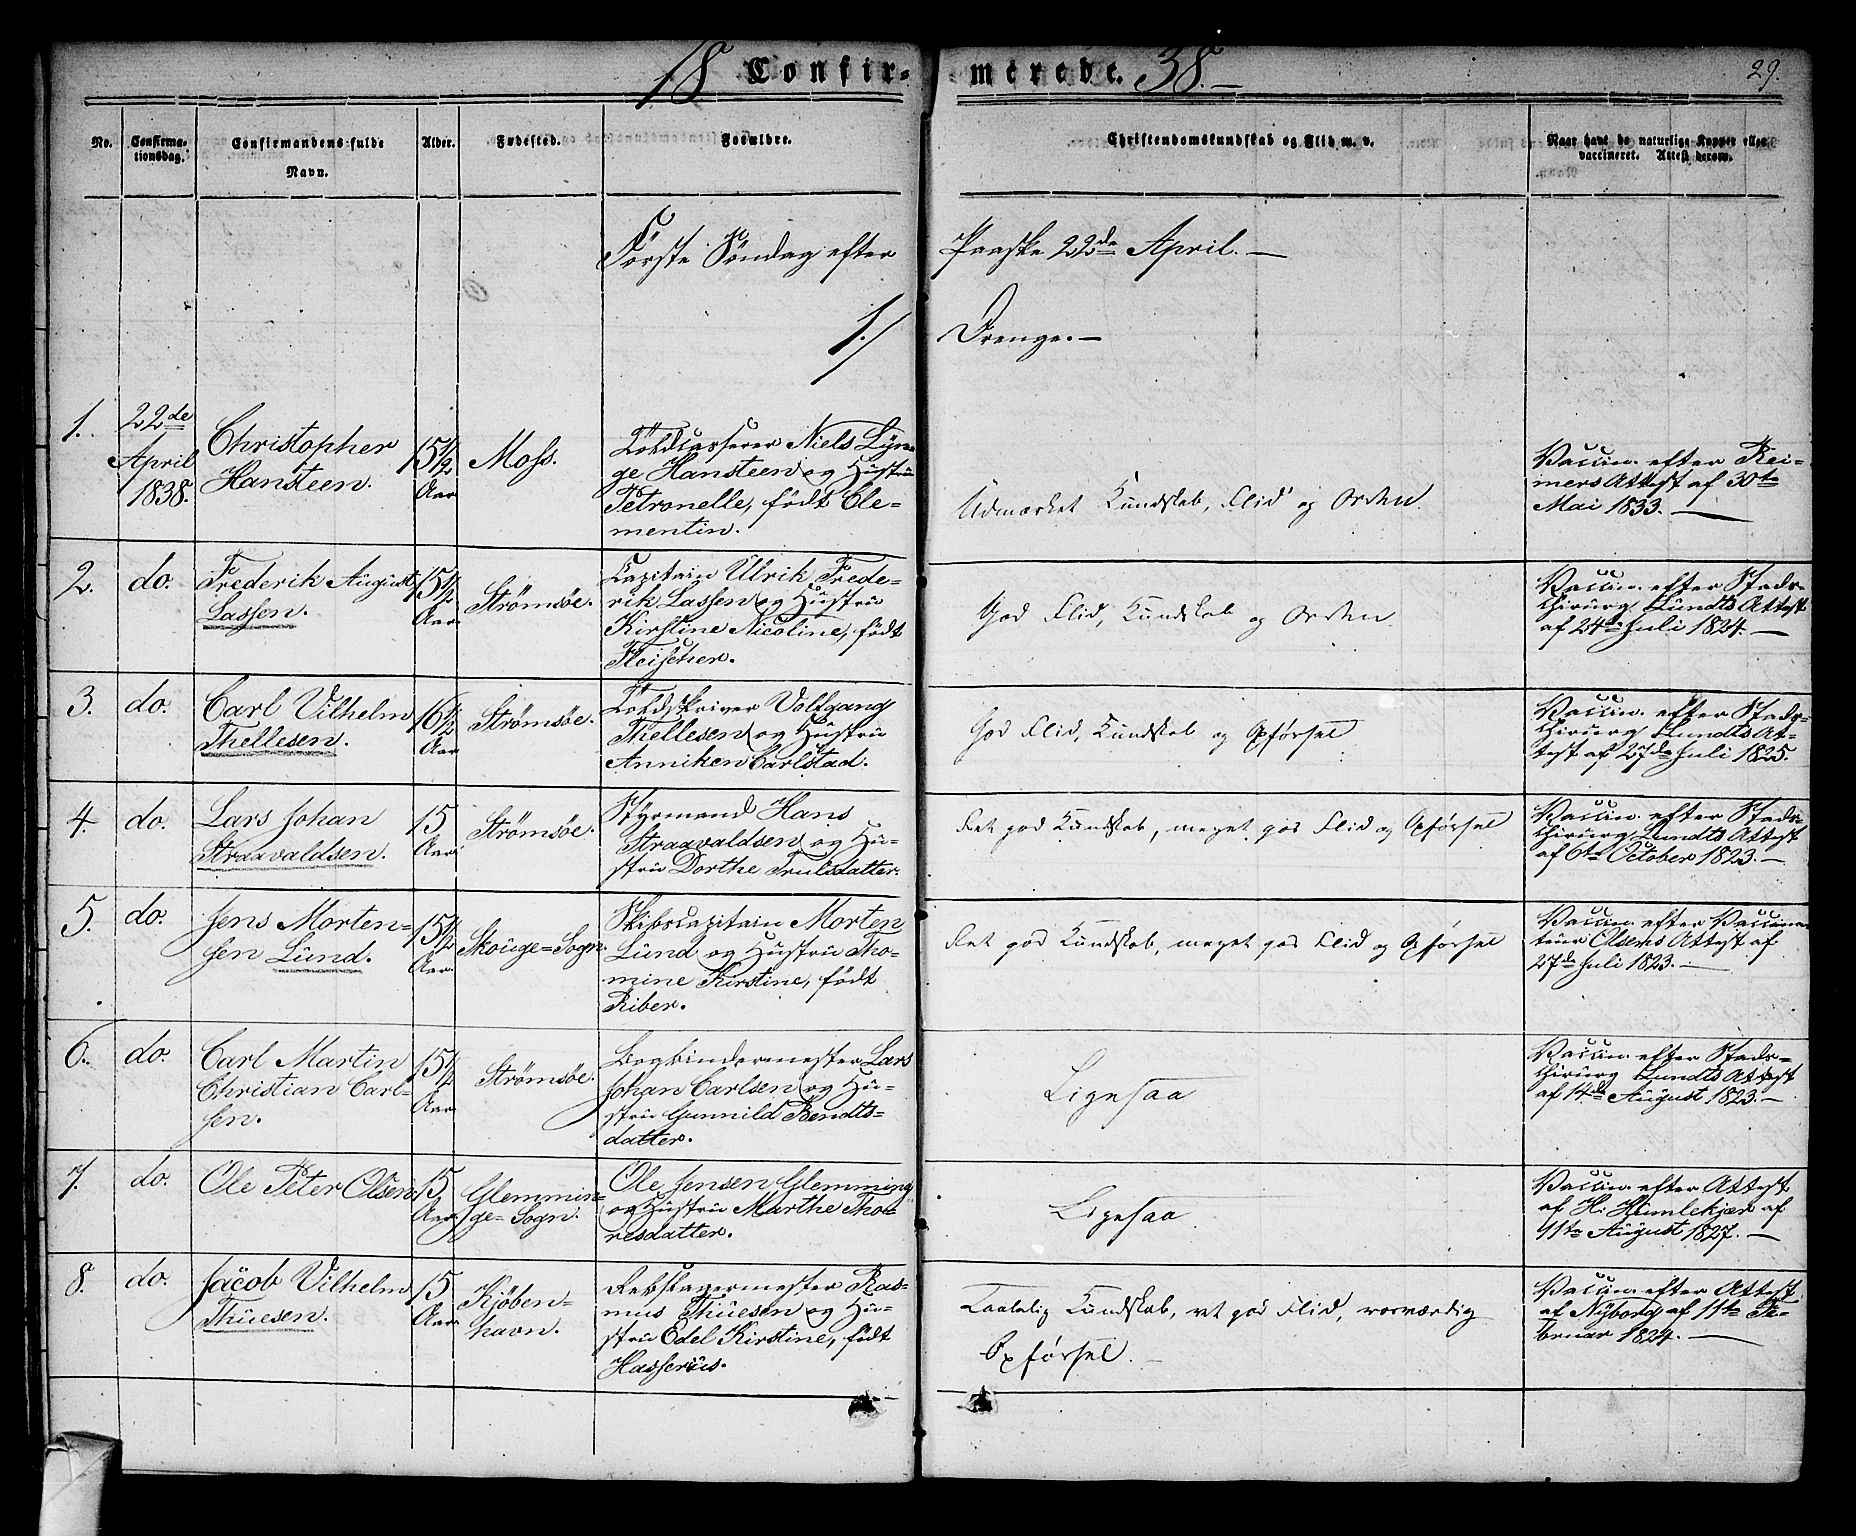 18 Confir-merede. 38.
29.
No.
Confirma-
tionsdag.
Confirmandens fulde
Navn.
Alder.
Fødested.
Forældre.
Christendomskundskab og Flid m. v.
Naar havt de naturlige Kopper eller
vaccineret. Attest derom.
Første Søndag efter Paaske 22de April.
1./ Drenge.
1.
22de
April
1838.
Christopher
Hansteen.
15 1/2
Aar
Moss.
Toldcasserer Niels Lyn-
ge Hansteen og Hustru
Petronelle, født Cle-
mentin.
Udmærket Kundskab, Flid og Orden.
Vaccin. efter Rei-
mers Attest af 30te
Mai 1833.
2.
do.
Frederik August
Lassen.
15 1/2
Aar
Strømsöe.
Capitain Ulrik Frede-
rik Lassen og Hustru
Kirstine Nicoline, født
Fleischer.
God Flid, Kundskab og Orden.
Vaccin. efter Stads-
chirurg Lundts Attest
af 24de Juli 1824.
3.
do.
Carl Vilhelm
Thellesen.
16 1/2
Aar
Strømsöe.
Toldskriver Volfgang
Thellesen og Hustru
Anniken Carlstad.
God Flid, Kundskab og Opførsel
Vaccin. efter Stads-
chirurg Lundts At-
test af 27de Juli 1825.
4.
do.
Lars Johan
Straavaldsen.
15
Aar
Strømsöe.
Styrmand Hans
Straavaldsen og Hu-
stru Dorthe Trulsdatter.
Ret god Kundskab, meget god Flid og Opførsel
Vaccin. efter Stads-
chirurg Lundts Attest
af 6te October 1823.
5.
do.
Jens Morten-
sen Lund.
15 1/2
Aar
Skouge=Sogn.
Skibscapitain Morten
Lund og Hustru Tho-
mine Kirstine, født
Riber.
Ret god Kundskab, meget god Flid og Opførsel
Vaccin. efter Vaccina-
teur Olsens Attest af
27de Juli 1823.
6.
do.
Carl Martin
Christian Carl-
sen.
15 1/2
Aar
Strømsöe.
Bogbindermester Lars
Johan Carlsen og Hu-
stru Gunnild Bendts-
datter.
Ligesaa
Vaccin. efter Stads-
chirurg Lundts Attest
af 14de August 1823.
7.
do.
Ole Peter Olsen.
15
Aar
Glemmin-
ge=Sogn.
Ole Jensen Glemming
og Hustru Marthe Tho-
resdatter.
Ligesaa
Vaccin. efter Attest
af H. Himlekjær af
11te August 1827.
8.
do.
Jacob Vilhelm
Thuesen.
15
Aar
Kjöben-
havn.
Rebslagermester Ras-
mus Thuesen og Hu-
stru Edel Kirstine, født
Hasseriis.
Taalelig Kundskab, ret god Flid, rosværdig
Opførsel.
Vaccin. efter Attest
af Nyborg af 11te Fe-
bruar 1824.